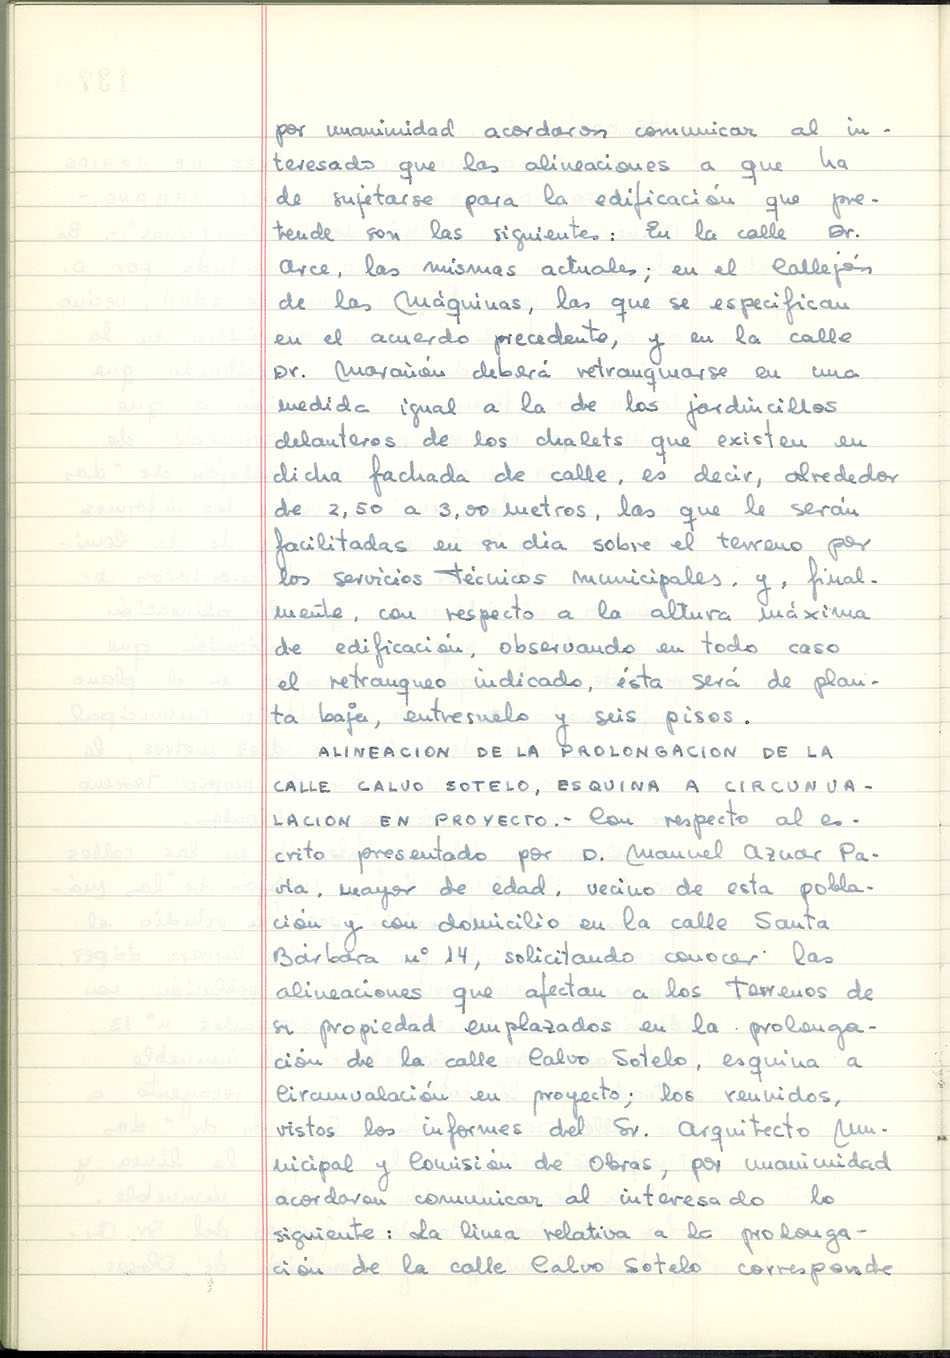 por unanimidad acordaron comunicar al in-
teresado que las alineaciones a que ha
de sujetarse para la edificación que pre-
tende son las siguientes: En la calle Dr.
Arce, las mismas actuales; en el Callejón
de las Máquinas, las que se especifican
en el acuerdo precedente, y en la calle
Dr. Marañón deberá retranquearse en una
medida igual a la de los jardincillos
delanteros de los chalets que existen en
dicha fachada de calle, es decir, alrededor
de 2,50 a 3,00 metros, las que le serán
facilitadas en su dia sobre el terreno por
los servicios Técnicos municipales, y, final-
mente, con respecto a la altura máxima
de edificación, observando en todo caso
el retranqueo indicado, ésta será de plan-
ta baja, entresuelo y seis pisos.
ALINEACION DE LA PROLONGACION DE LA
CALLE CALVO SOTELO, ESQUINA A CIRCUNVA-
LACION EN PROYECTO.- Con respecto al es-
crito presentado por D. Manuel Aznar Pa-
via, mayor de edad, vecino de esta pobla-
ción y con domicilio en la calle Santa
Bárbara nº 14, solicitando conocer las
alineaciones que afectan a los terrenos de
su propiedad emplazados en la prolonga-
ción de la calle Calvo Sotelo, esquina a
Circunvalación en proyecto; los reunidos,
vistos los informes del Sr. Arquitecto Mu-
nicipal y Comisión de Obras, por unanimidad
acordaron comunicar al interesado lo
siguiente: La linea relativa a la prolonga-
ción de la calle Calvo Sotelo corresponde